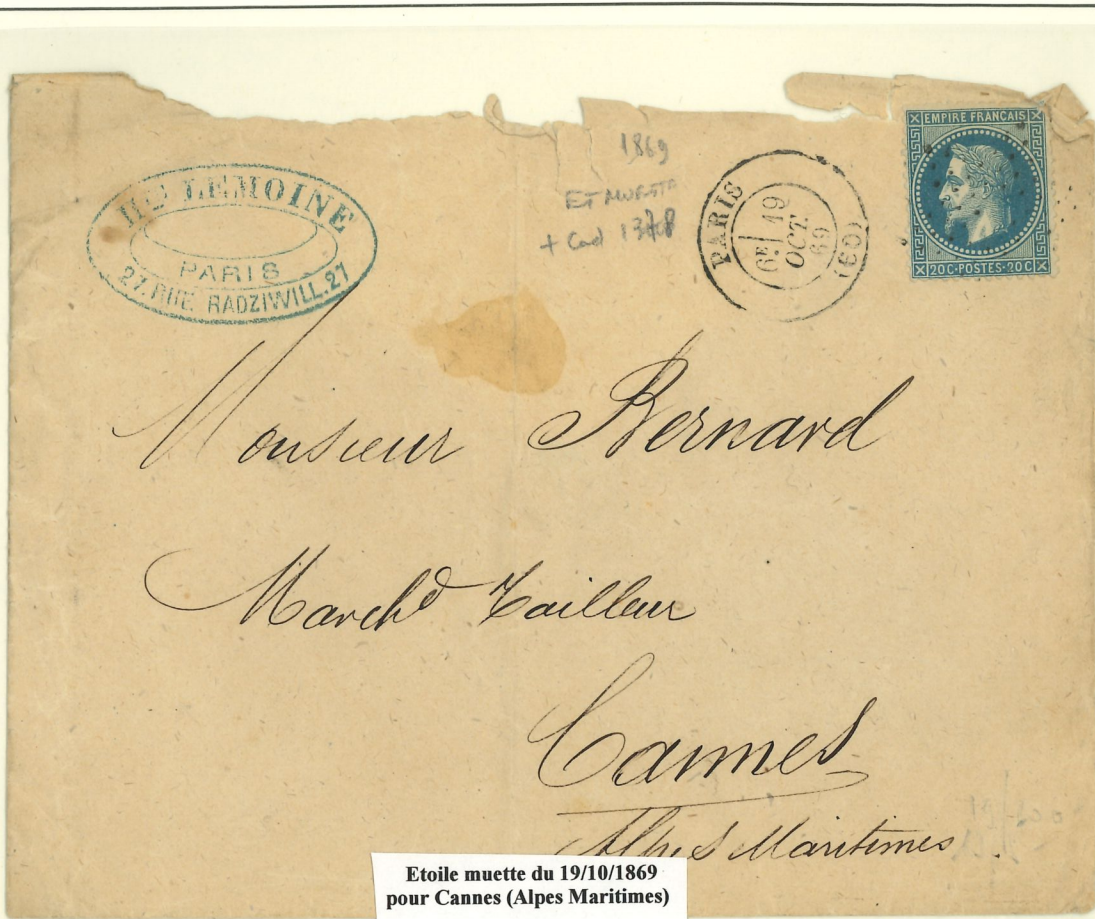 Hte LEMOINE
PARIS
27. RUE RADZIWILL. 27
1869
ET MUETTE
+ Cad 1378
PARIS
6E
19
OCT.
69
(60)
EMPIRE FRANÇAIS
20C·POSTES·20C
Monsieur Bernard
Marchd Tailleur
Cannes
Alpes Maritimes
Etoile muette du 19/10/1869
pour Cannes (Alpes Maritimes)